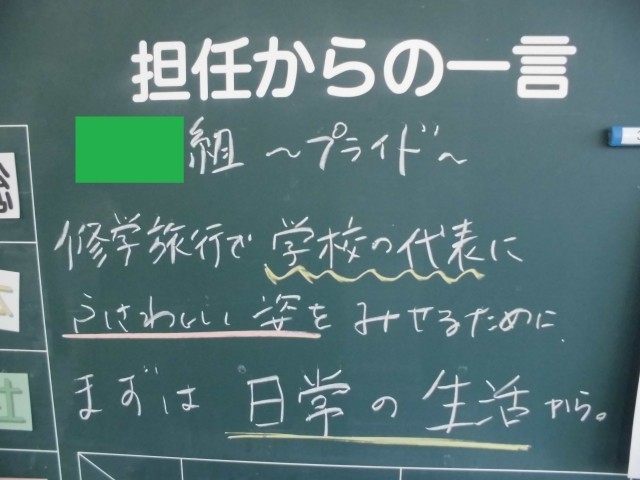 担任からの一言
組 ~プライド~
修学旅行で 学校の代表に
ふさわしい 姿を みせるために、
まずは 日常の 生活 から。